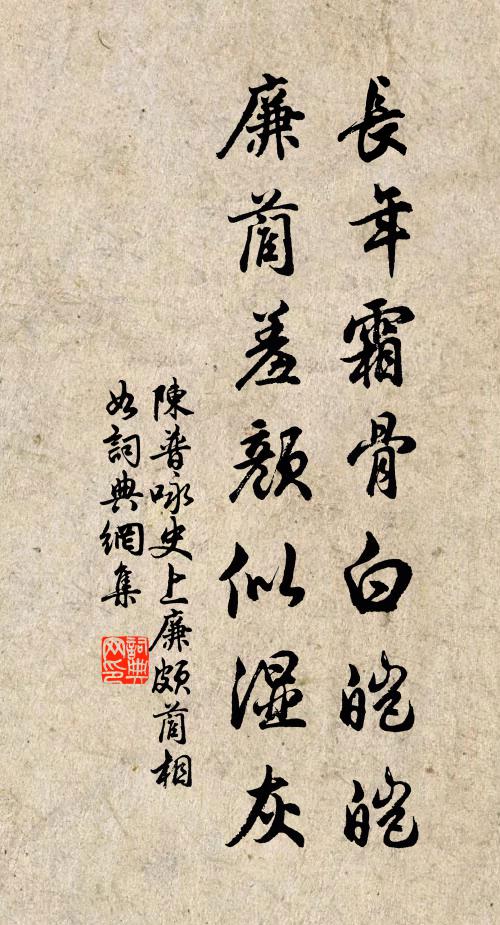 長年霜骨白皚皚
廉藺羞顏似濕灰
陳普咏史上廉頗藺相
如詞典網集
詞典
网印